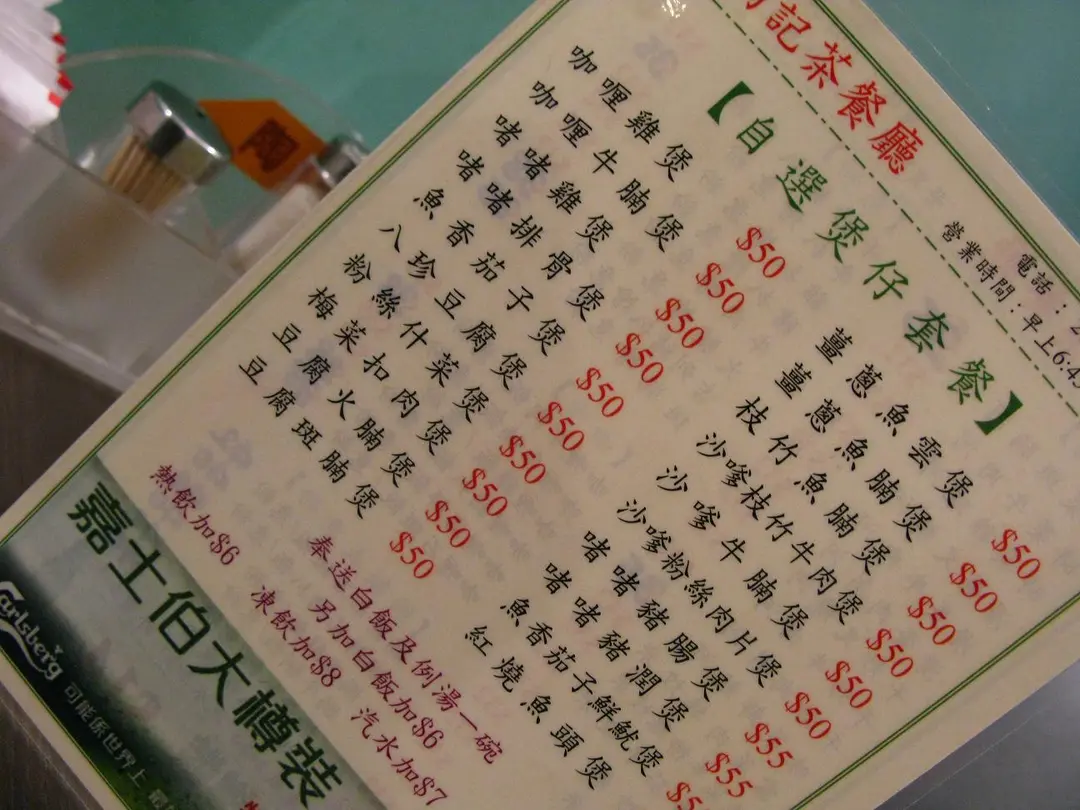 記茶餐廳
電話：2
營業時間：早上6:45
【自選煲仔套餐】
咖喱雞煲 $50
咖喱牛腩煲 $50
啫啫雞煲 $50
啫啫排骨煲 $50
魚香茄子煲 $50
八珍豆腐煲 $50
粉絲什菜煲 $50
梅菜扣肉煲 $50
豆腐火腩煲 $50
豆腐斑腩煲 $50
薑蔥魚雲煲 $50
薑蔥魚腩煲 $50
枝竹魚腩煲 $50
沙嗲枝竹牛肉煲 $50
沙嗲牛腩煲 $50
沙嗲粉絲肉片煲 $50
啫啫豬腸煲 $55
啫啫豬潤煲 $55
魚香茄子鮮魷煲
紅燒魚頭煲
奉送白飯及例湯一碗
另加白飯加$6
熱飲加$6 凍飲加$8 汽水加$7
嘉士伯大樽裝
Carlsberg 可能係世界上